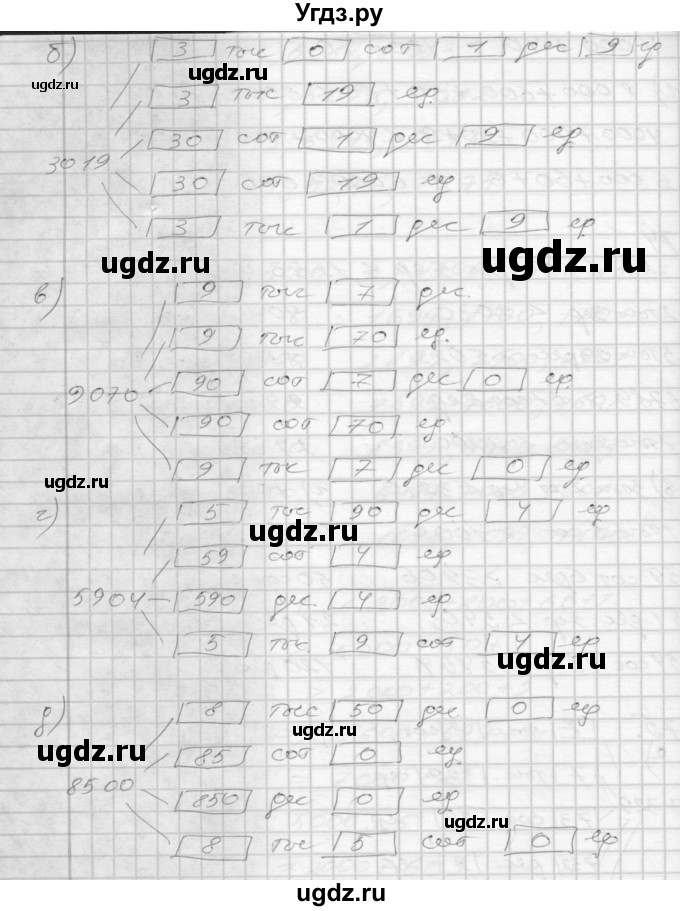 Угдз.ру
б) 3 тыс 0 сот 1 дес 9 ед
ugdz.ru ugdz.ru
3 тыс 19 ед.
30 сот 1 дес 9 ед
3019
30 сот 19 ед
3 тыс 1 дес 9 ед
ugdz.ru ugdz.ru
в) 9 тыс 7 дес.
9 тыс 70 ед.
ugdz.ru
9070 90 сот 7 дес 0 ед.
90 сот 70 ед.
9 тыс 7 дес 0 ед.
ugdz.ru
г) 5 тыс 90 дес 4 ед
ugdz.ru
59 сот 4 ед
5904 590 дес 4 ед.
5 тыс 9 сот 4 ед
ugdz.ru
д) 8 тыс 50 дес 0 ед
ugdz.ru 85 сот 0 ед
8500
850 дес 0 ед
ugdz.ru
8 тыс 5 сот 0 ед
ugdz.ru